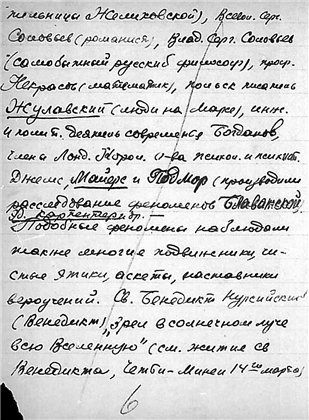 тельницы Желиховской), Всевол. Серг.
Соловьев (романист), Влад. Серг. Соловьев
(самобытный русский философ), проф.
Некрасов (математик), польск писатель
Жулавский (люди на Марс), инж.
и полит. деятель современ Богданов,
члены Лонд. Корол. о-ва психол. и психич.
Джемс, Майерс и Подмор (производили
расследование феноменов Блаватской,
Э. Карпентер и др. —
Подобные феномены наблюдали
также многие подвижники, чи-
стые , аскеты, наставники
вероучений. Св. Бенедикт Нурсийский
(Венедикт) „Зрел в солнечном луче
всю Вселенную" (см. житие св
Венедикта, Четьи-Минеи 14го марта)
6